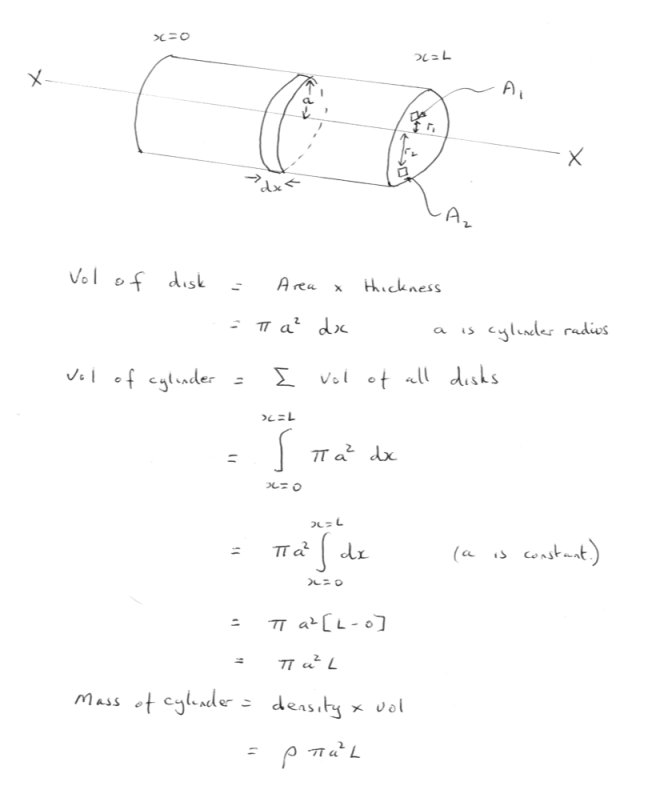 x=0
x=L
X
A₁
a
r₁
r₂
X
dx
A₂
Vol of disk = Area x thickness
= π a² dx a is cylinder radius
Vol of cylinder = Σ Vol of all disks
x=L
= ∫ πa² dx
x=0
x=L
= πa² ∫ dx (a is constant.)
x=0
= π a² [L-0]
= π a² L
Mass of cylinder = density x vol
= ρ πa² L